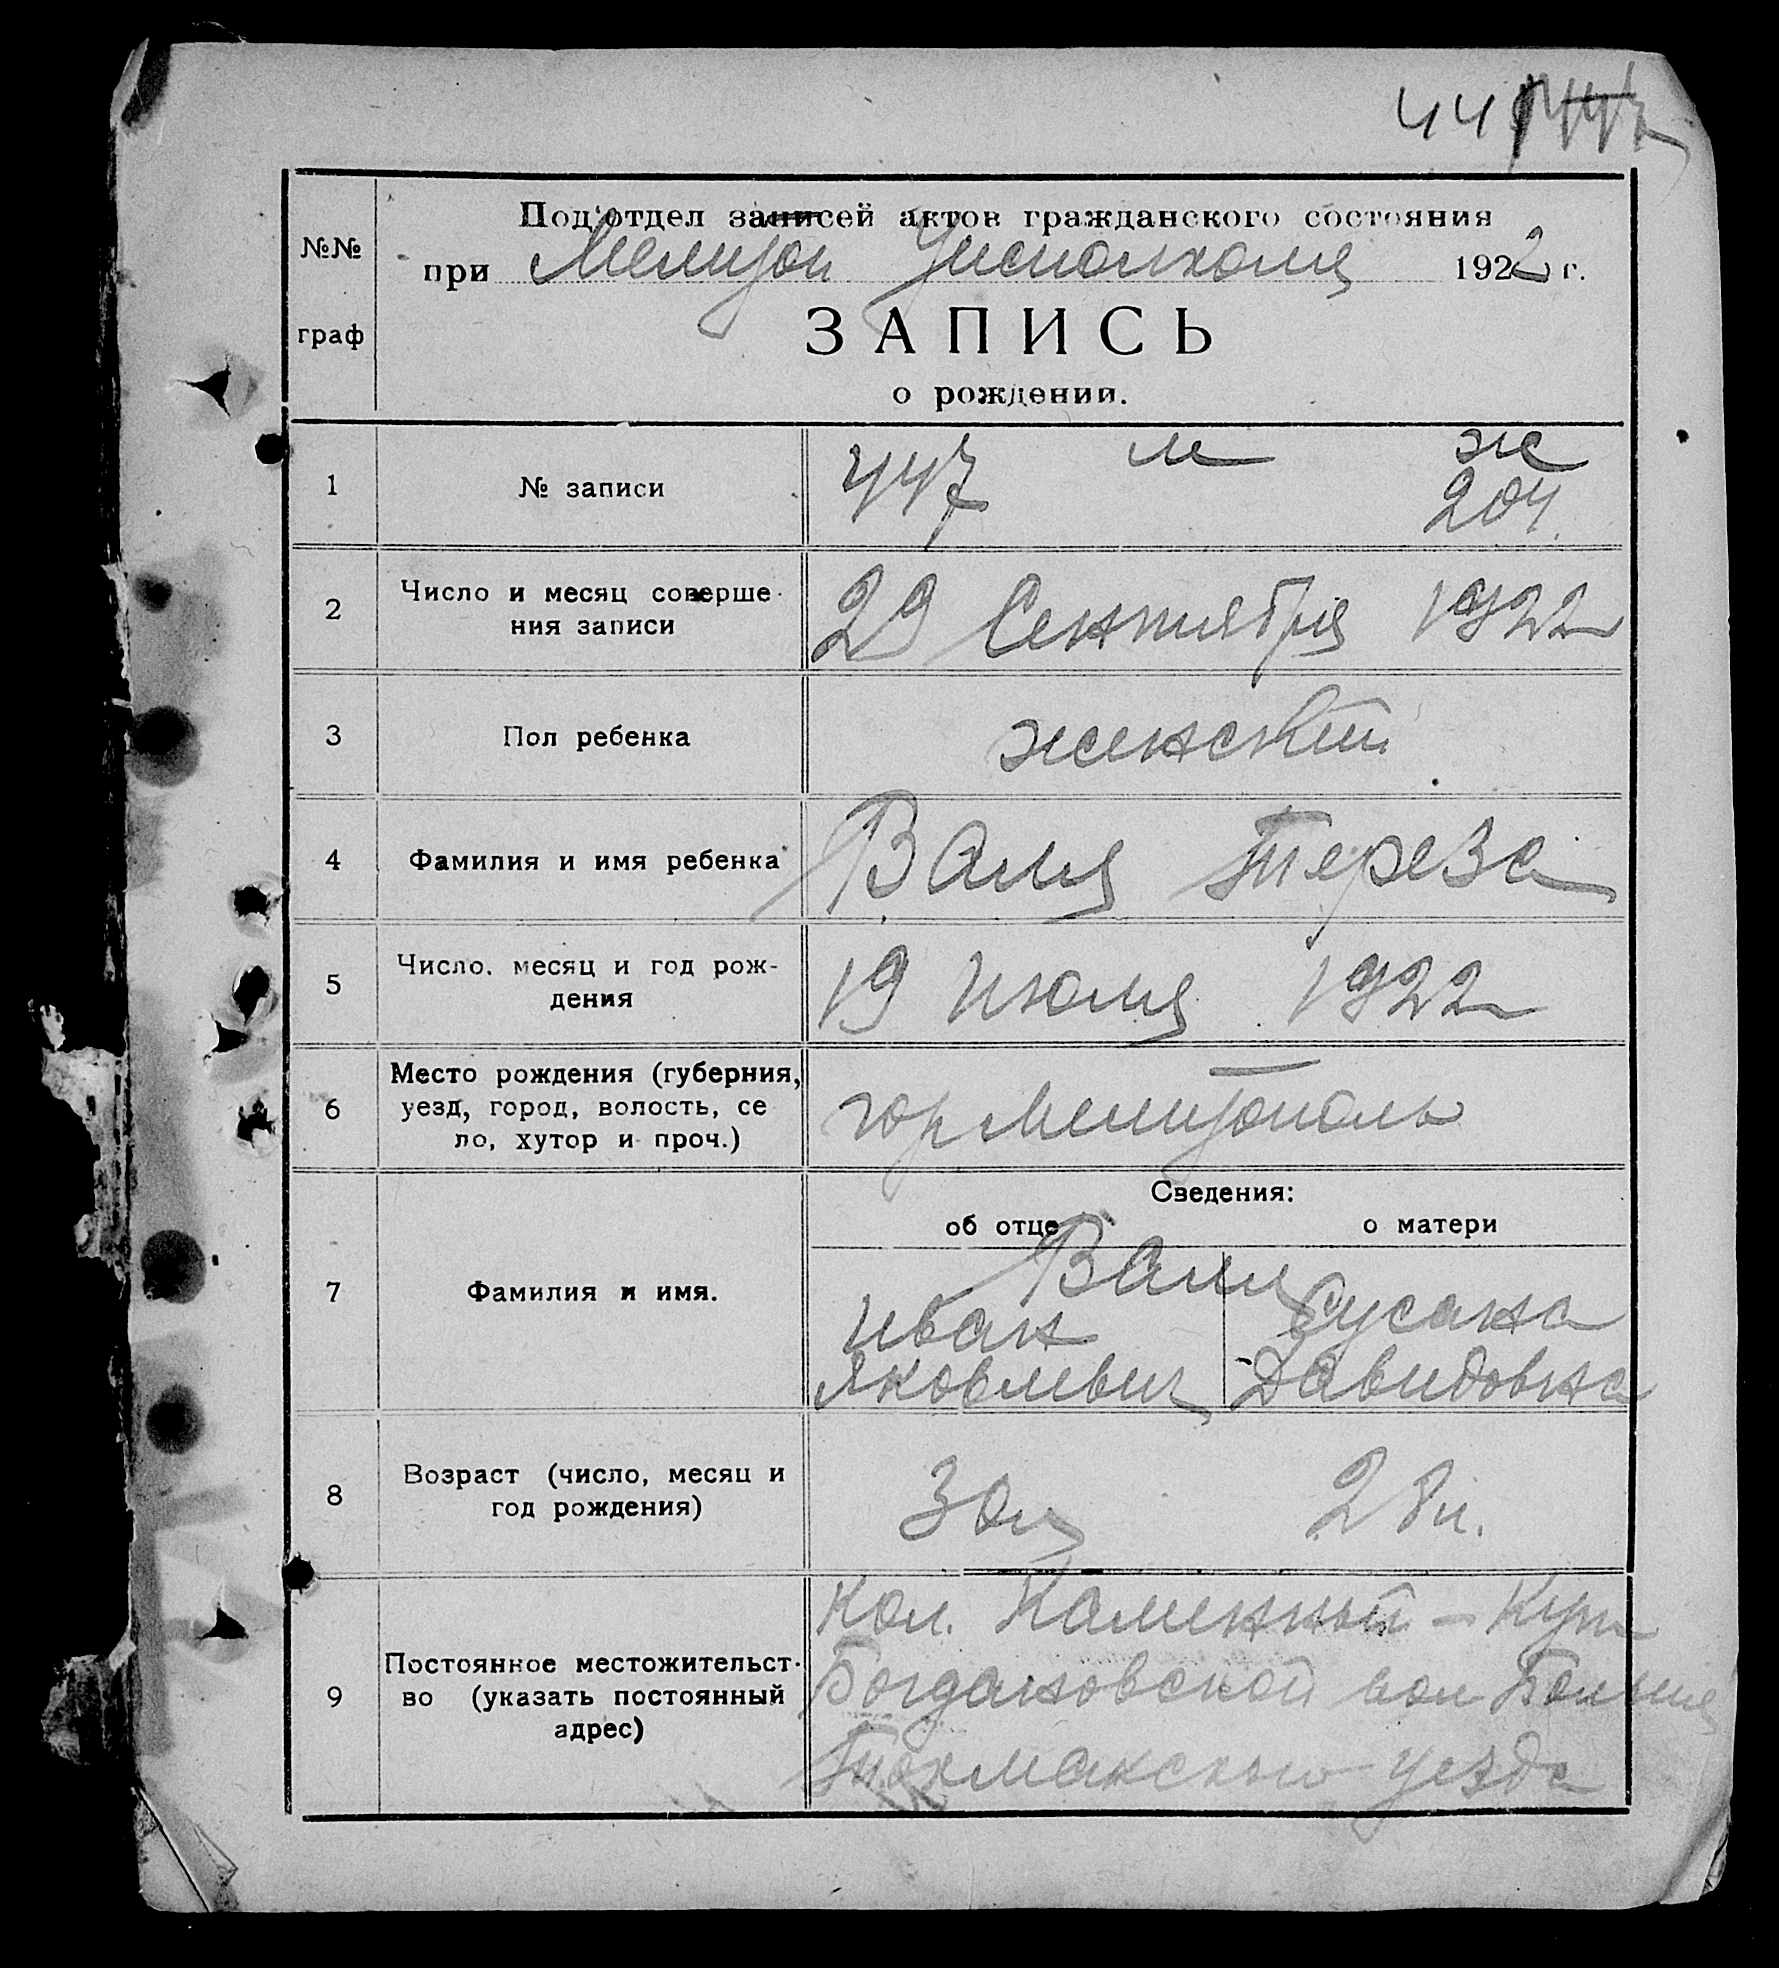 441
№№
граф
Под'отдел записей актов гражданского состояния
при Мелитоп Уисполкоме 1922 г.
ЗАПИСЬ
о рождении.
1
№ записи
447 м ж
204
2
Число и месяц соверше-
ния записи
29 Сентября 1922
3
Пол ребенка
женский
4
Фамилия и имя ребенка
Валл Тереза
5
Число, месяц и год рож-
дения
19 Июля 1922
6
Место рождения (губерния,
уезд, город, волость, се
ло, хутор и проч.)
гор Мелитополь
Сведения:
об отце
о матери
7
Фамилия и имя.
Валл
Иван
Яковлевич
Сусана
Давидовна
8
Возраст (число, месяц и
год рождения)
30л
28л.
9
Постоянное местожительст-
во (указать постоянный
адрес)
Кол. Каменный-
Богдановской вол Больше
Токмакского уезда